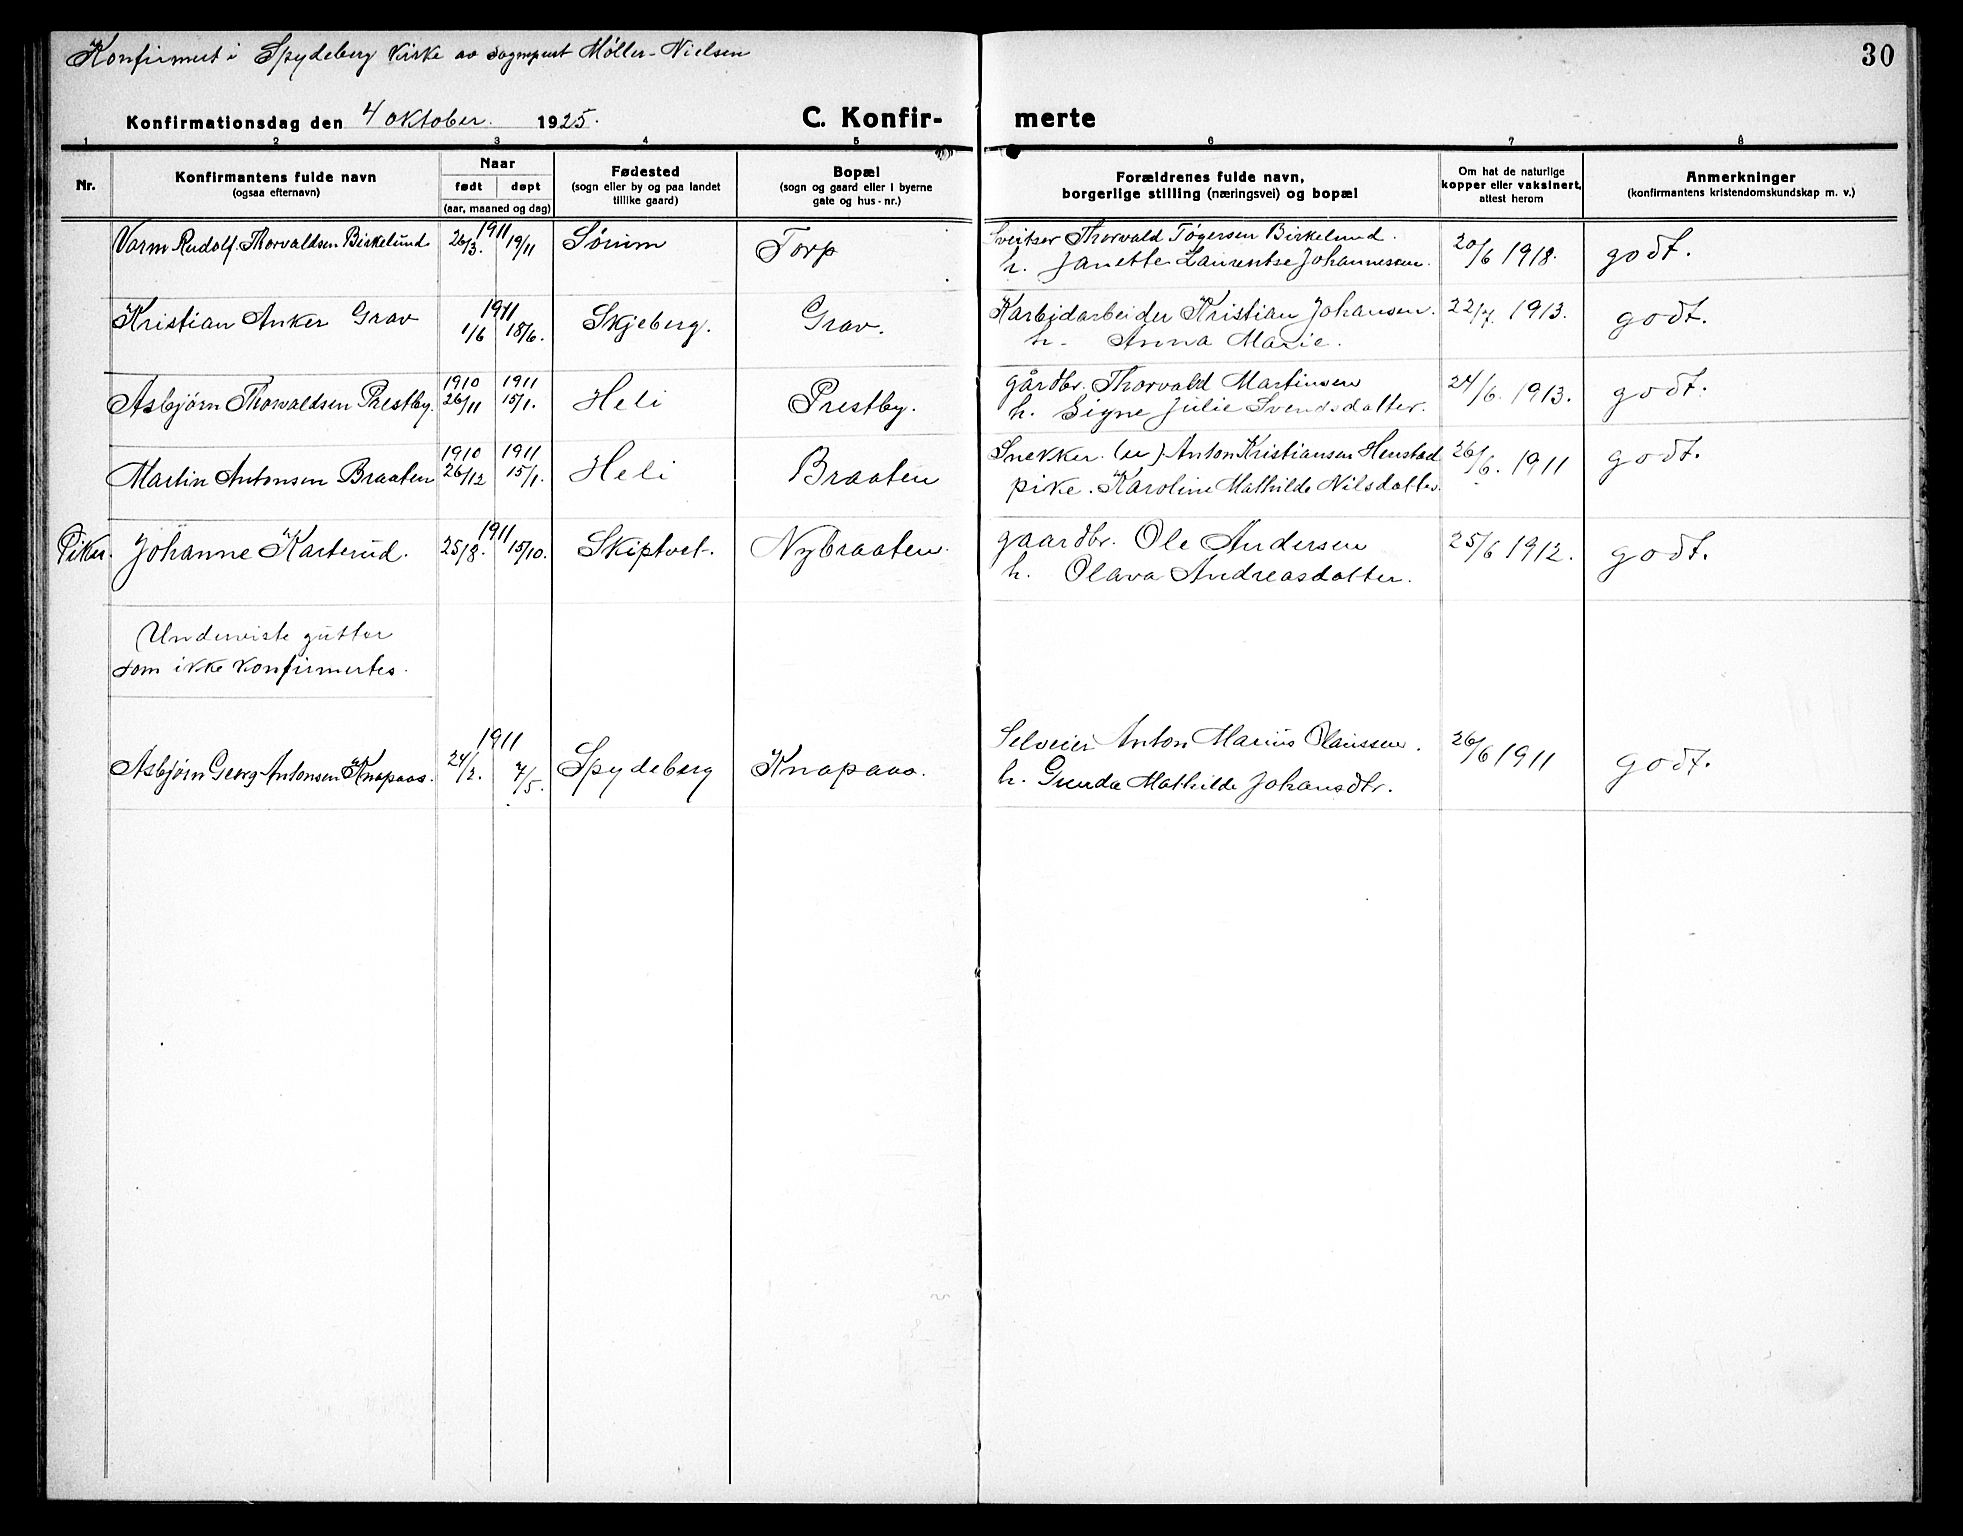 Konfirmert i Spydeberg Kirke av sogneprest Møller-Nielsen
30
Konfirmationsdag den 4 oktober. 1925.
C. Konfir-
merte
1 2 3 4 5 6 7 8
Nr.
Konfirmantens fulde navn
(ogsaa efternavn)
Naar
født døpt
(aar, maaned og dag)
Fødested
(sogn eller by og paa landet
tillike gaard)
Bopæl
(sogn og gaard eller i byerne
gate og hus-nr.)
Forældrenes fulde navn,
borgerlige stilling (næringsvei) og bopæl
Om hat de naturlige
kopper eller vaksinert,
attest herom
Anmerkninger
(konfirmantens kristendomskundskap m. v.)
Varm Rudolf Thorvaldsen Birkelund 1911 26/3. 19/11 Sørum Torp
Sveitser Thorvald Tøgersen Birkelund. 20/6 1918. godt.
h. Janette Laurentse Johannesen.
Kristian Anker Grav 1911 1/6 18/6. Skjeberg. Grav.
Karbidarbeider Kristian Johansen. 22/7. 1913. godt.
h. Anna Marie.
Asbjørn Thorvaldsen Prestby. 1910 26/11 1911 15/1. Heli Prestby.
gårdbr. Thorvald Martinsen 24/6. 1913. godt.
h. Signe Julie Svendsdatter.
Martin Antonsen Braaten 1910 26/12 1911 15/1. Heli Braaten
Snekker. (u) Anton Kristiansen Henstad 26/6. 1911 godt.
pike. Karoline Mathilde Nilsdatter.
Piker. Johanne Karterud. 1911 25/8. 15/10. Skiptvet. Nybraaten.
gaardbr. Ole Andersen 25/6 1912. godt.
h. Olava Andreasdatter.
Underviste gutter
som ikke konfirmertes.
Asbjørn Georg Antonsen Knapaas. 1911 24/2. 7/5. Spydeberg Knapaas.
Selveier Anton Marius Olaussen. 26/6 1911 godt.
h. Gunda Mathilde Johansdtr.